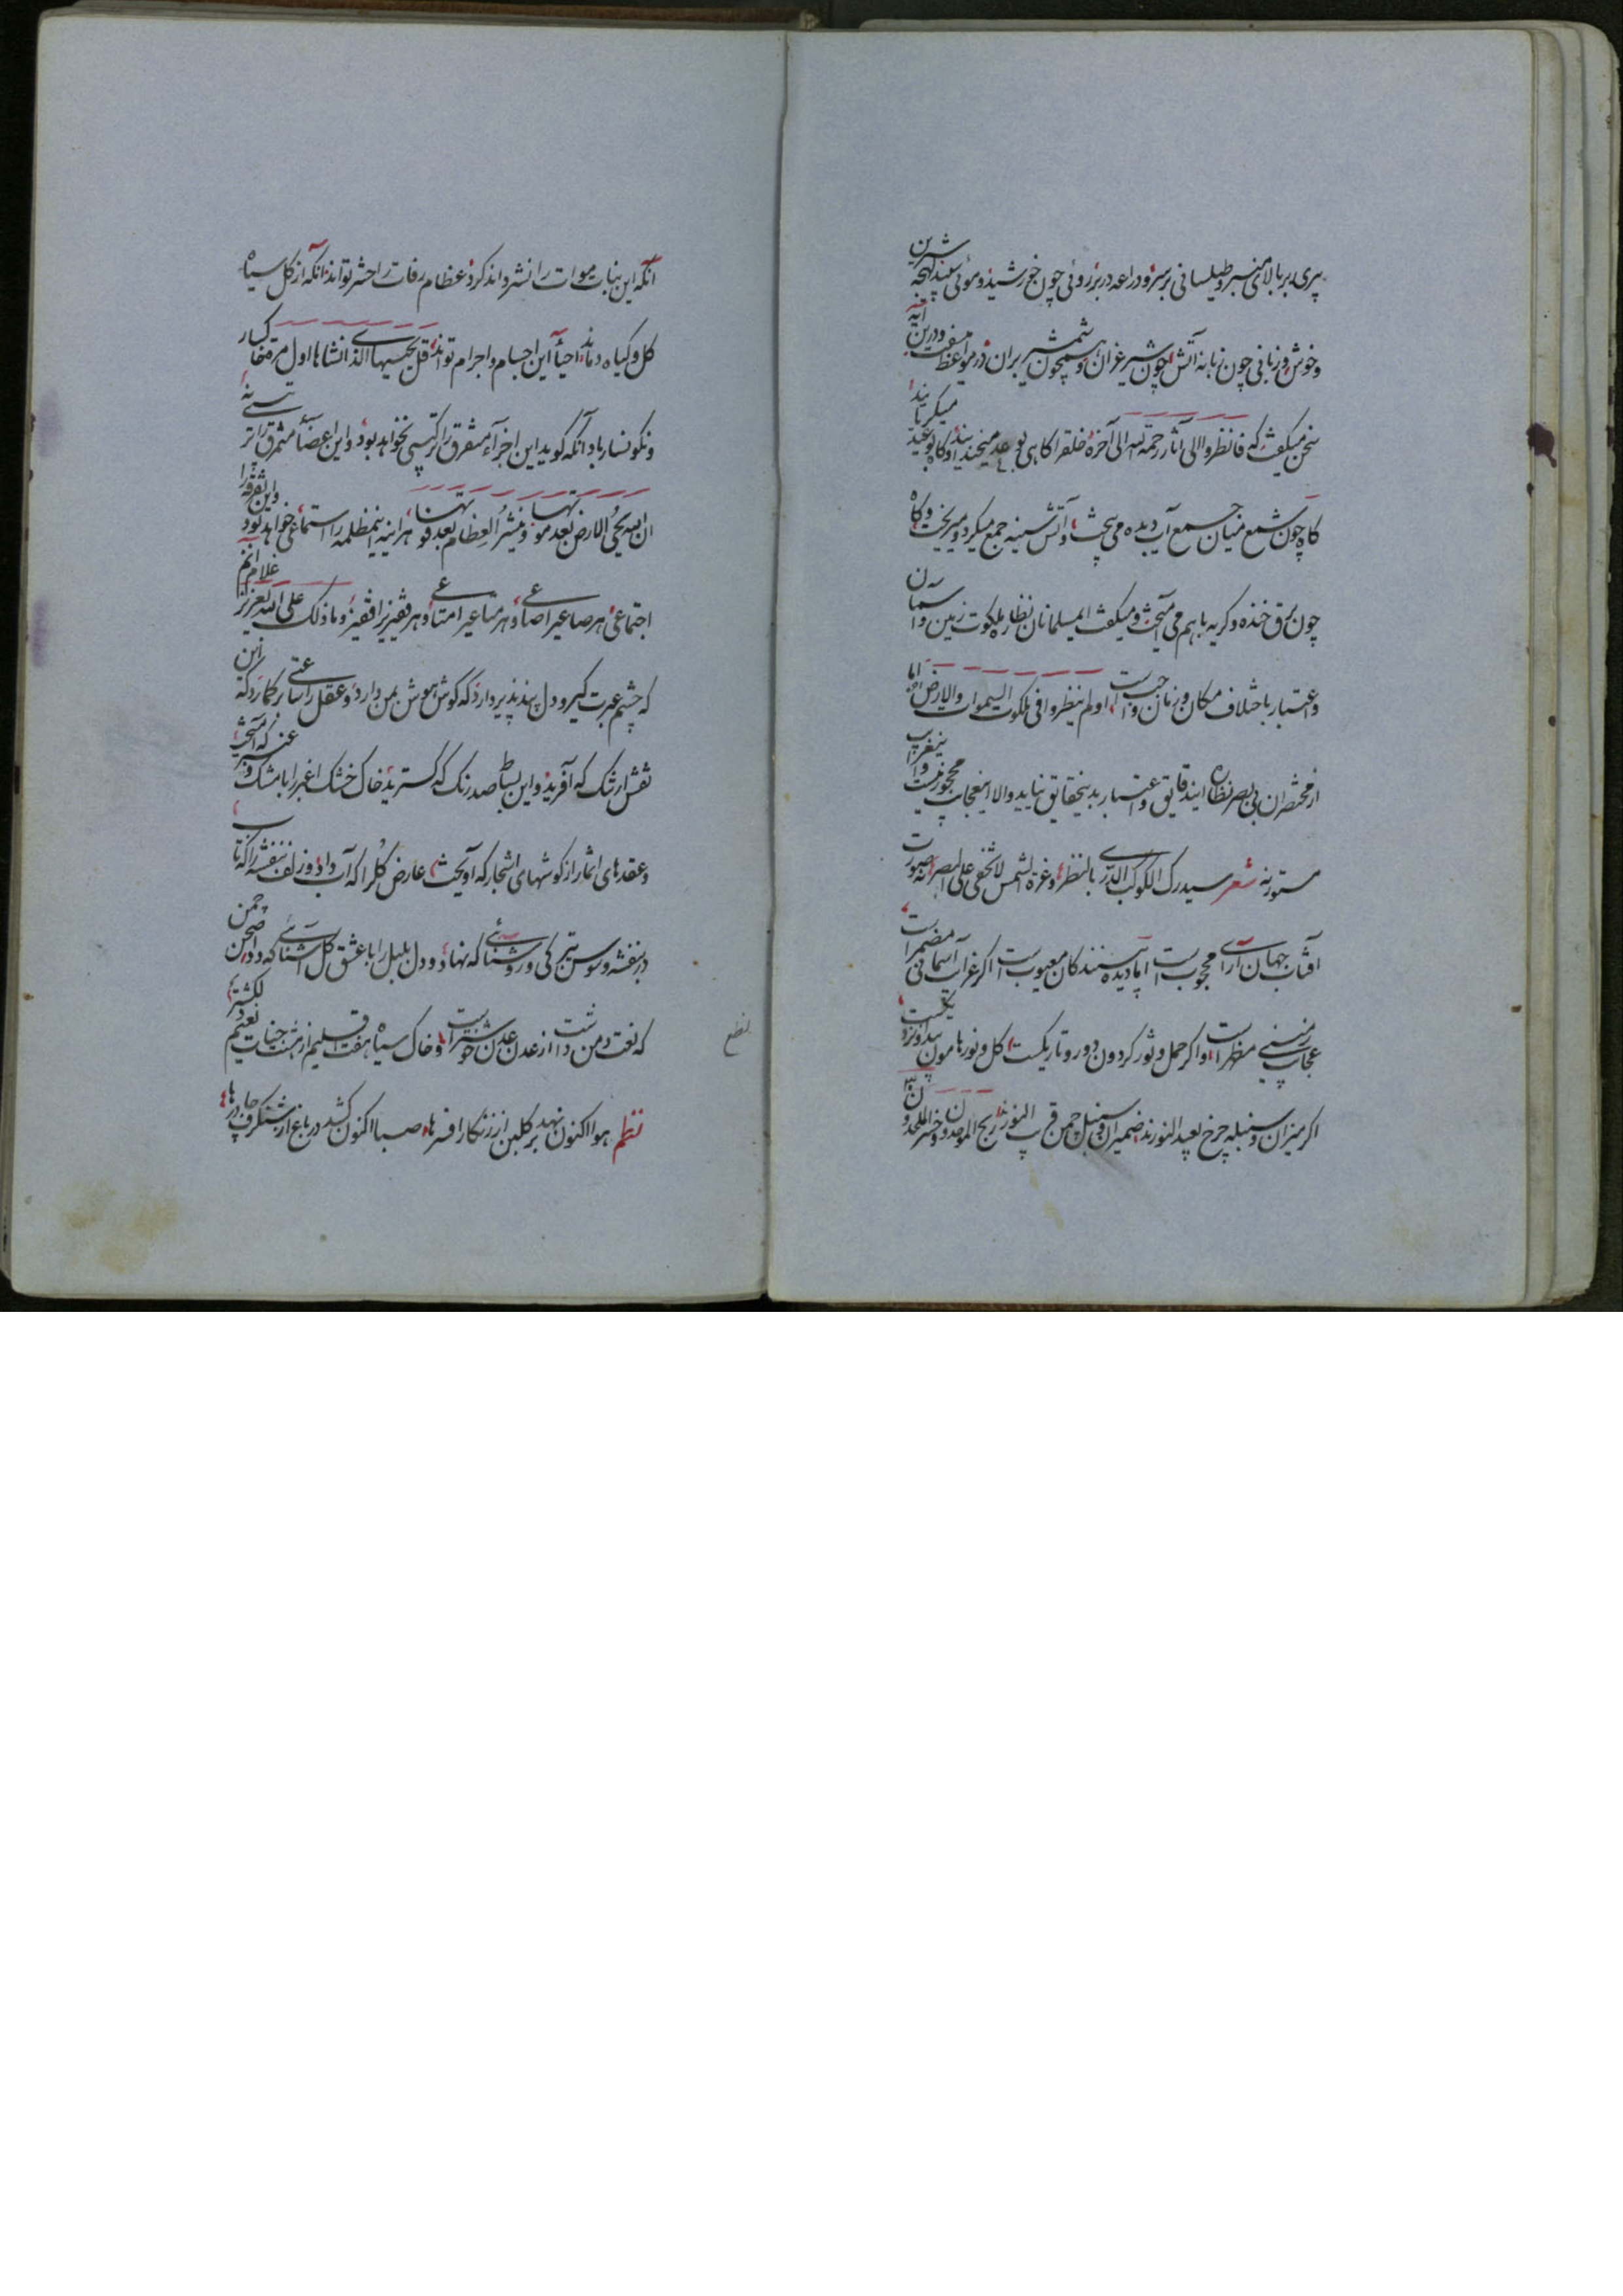 پیری بر بالای منبر و طیلسانی بر سر و دراعه در بر روئی چون خورشید و موئی سپید لهجه شیرین
و خوش و زبانی چون زبانه آتش چون شیر غران و همچون شمشیر بران در مواعظ سفت و درین آیه
سخن میکفت که فانظروا الی آثار رحمة الله الی آخره خلقرا کاهی بوعد میخندانید و کاه بوعید میکریانید
کاه چون شمع میان جمع آب دیده می پخت و آتش سینه جمع میکرد و میریخت و کاه
چون برق خنده و کریه باهم می آمیخت و میکفت ایمسلمانان نظاره ملکوت زمین و آسمان
و اعتبار باختلاف مکان و زمان واجبست اولم ینظروا فی ملکوت السموات والارض اما
از مختصران بی بصر نظاره ایندقایق و اعتبار بدینحقایق نیاید والا اینعجایب محجوب نیست و اینغرایب
مستور نه شعر سیدرک الکوکب الدری بالنظر وغرة الشمس لاتخفی علی البصر نه صورت
آفتاب جهان آرای محجوبست اما دیده بینندکان معیوبست اکر غرایب آسمانی مضمراست
عجایب زمینی مظهر است و اکر حمل و ثور کردون دور و تاریکست کل و نور هامون پیدا و نزدیکست
اکر میزان و سنبله چرخ بعید النورند ضمیران و سنبل چمن قریب النورند ربح الموحدون و خسر الملحدون
آنکه این بنات موات را نشر تواند کرد عظام رفات را حشر تواند آنکه از کل سیاه
کل و کیاه دماند احیاء این اجسام و اجرام تواند قل یحییها الذی انشاها اول مرة خاکسار
و نکونسار باد آنکه کوید این اجزاء متفرق را ترکیبی نخواهد بود و این اعضاء متمزق را ترتیبی نه
ان الله یحی الارض بعد موتها و ینشر العظام بعد فوتها هر آینه اینمظلمه را استماعی خواهد بود و این تفرقه را
اجتماعی هر صاعی را صاعی و هر متاعی را متاعی و هر قفیزی را قفیزی و ما ذلک علی الله بعزیز غلام آنم
که چشم عبرت کیر و دل پند پذیر دارد که کوش هوش بمن دارد و عقل را ساعتی بر کمارد که این
نقش ارتنک که آفرید و این بساط صد رنک که کسترید خاک خشک اغبر را با مشک و عنبر که آمیخت
و عقدهای اثمار از کوشهای اشجار که آویخت عارض کلرا که آب داد و زلف بنفشه را که تاب
در بنفشه و سوسن تیرکی و روشنائی که نهاد و دل بلبل را با عشق کل آشنائی که داد صحن چمن
که نعت دمن داشت از عدن عدن خوشتر است و خاک سیاه هفت اقلیم از هشت جنات نعیم دلکشتر
نظم هوا اکنون نهد بر کلبن از زنکار افسرها صبا اکنون کشد در باغ از شنکرف چادرها